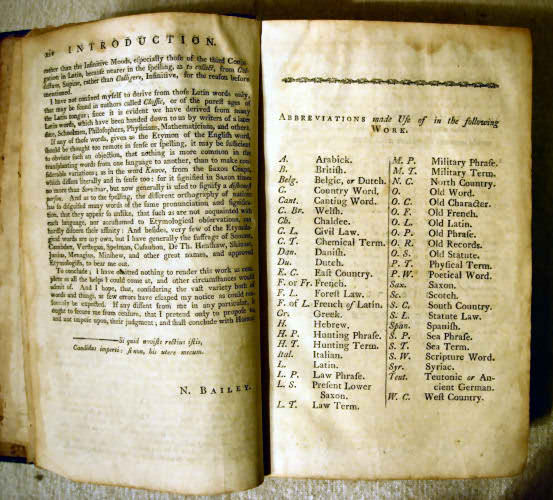 xiv INTRODUCTION.
rather than the Infinitive Moods, especially those of the third Conju-
gation in Latin, because nearer in the spelling, as to collect, from Col-
lectum, Supine, rather than Colligere, Infinitive, for the reason before
mentioned.
I have not confined myself to derive from those Latin words only,
that may be found in authors called Classic, or of the purest ages of
the Latin tongue; since it is evident we have derived from many
Latin words, which have been handed down to us by writers of a later
date, Schoolmen, Philosophers, Physicians, Mathematicians, and others.
If any of those words, given as the Etymon of the English word,
should be thought too remote in sense or spelling, it may be sufficient
to obviate such an objection, that nothing is more common in the
transplanting words from one language to another, than to make con-
siderable variations; as in the word Knave, from the Saxon Cnapa,
which differs literally and in sense too: for it signified in Saxon times
no more than Servitor, but now generally is used to signify a dishonest
person. And as to the spelling, the different orthography of nations
has so disguised many words of the same pronunciation and significa-
tion, that they appear so unlike, that such as are not acquainted with
each language, nor accustomed to Etymological observations, can
hardly discern their affinity: And besides, very few of the Etymolo-
gical words are my own, but I have generally the suffrage of Somner,
Camden, Verstegan, Spelman, Casaubon, Dr Th. Henshaw, Skinner,
Junius, Menagius, Minshew, and other great names, and approved
Etymologists, to bear me out.
To conclude; I have omitted nothing to render this work as com-
plete as all the helps I could come at, and other circumstances would
admit of. And I hope, that, considering the vast variety both of
words and things, if few errors have escaped my notice as could rea-
sonably be expected. If any dissent from me in any particular, it
ought to secure me from censure, that I pretend only to propose to,
and not impose upon, their judgment; and shall conclude with Horace
Si quid novisti rectius istis,
Candidus imperti: si non, his utere mecum.
N. BAILEY.
ABBREVIATIONS made Use of in the following
WORK.
A. Arabick.
B. British.
Belg. Belgic, or Dutch.
C. Country Word,
Cant. Canting Word.
C. Br. Welsh.
Ch. Chaldee.
C. L. Civil Law.
C. T. Chemical Term.
Dan. Danish.
Du. Dutch.
E. C. East Country.
F. or Fr. French.
F. L. Forest Law.
F. of L. French of Latin.
Gr. Greek.
H. Hebrew.
H. P. Hunting Phrase.
H. T. Hunting Term.
Ital. Italian.
L. Latin.
L. P. Law Phrase.
L. S. Present Lower
Saxon.
L. T. Law Term.
M. P. Military Phrase.
M. T. Military Term.
N. C. North Country.
O. Old Word.
O. C. Old Character.
O. F. Old French.
O. L. Old Latin.
O. P. Old Phrase.
O. R. Old Records.
O. S. Old Statute.
P. T. Physical Term.
P. W. Poetical Word.
Sax. Saxon.
Sc. Scotch.
S. C. South Country.
S. L. Statute Law.
Span. Spanish.
S. P. Sea Phrase.
S. T. Sea Term.
S. W. Scripture Word.
Syr. Syriac.
Teut. Teutonic or An-
cient German.
W. C. West Country.